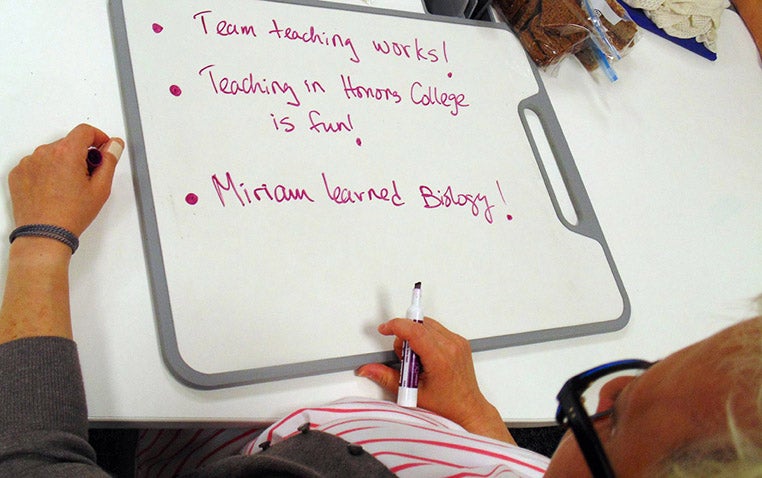 • Team teaching works!
• Teaching in Honors College
is fun!
• Miriam learned Biology!